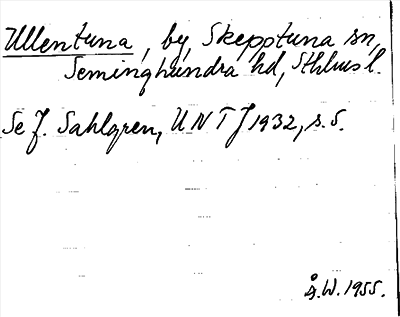 Ullentuna, by, Skepptuna sn,
Seminghundra hd, Sthlms l.
Se J. Sahlgren, UNTJ 1932, s. 5.
Å.W. 1955.